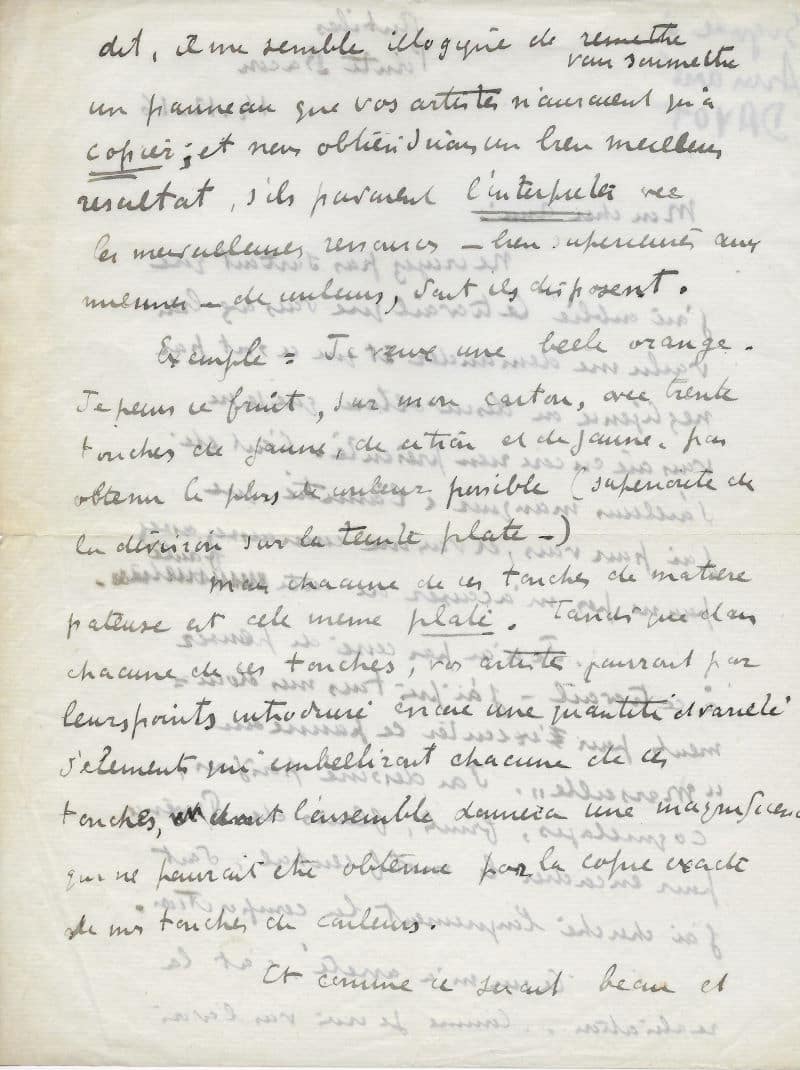 dit, il me semble illogique de remettre
vous soumettre
un panneau que vos artistes n'auraient qu'à
copier ; et nous obtiendrions un bien meilleur
resultat, s'ils pouvaient l'interpreter avec
les merveilleuses ressources – bien superieures aux
miennes – de couleurs, dont ils disposent.
Exemple = Je veux une belle orange.
Je peins ce fruit, sur mon carton, avec trente
touches de jaune, de citron et de jaune. pour
obtenir le plus de couleur possible (superiorité de
la division sur la teinte plate –)
Mais chacune de ces touches de matiere
pateuse est elle meme plate. Tandis que dans
chacune de ces touches, vos artistes pourront par
leurs points introduire encore une quantité et varieté
d'élements qui embelliront chacune de ces
touches, dont l'ensemble donnera une magnificence
qui ne pourrait etre obtenue par la copie exacte
de mes touches de couleurs.
Et comme ce serait beau et